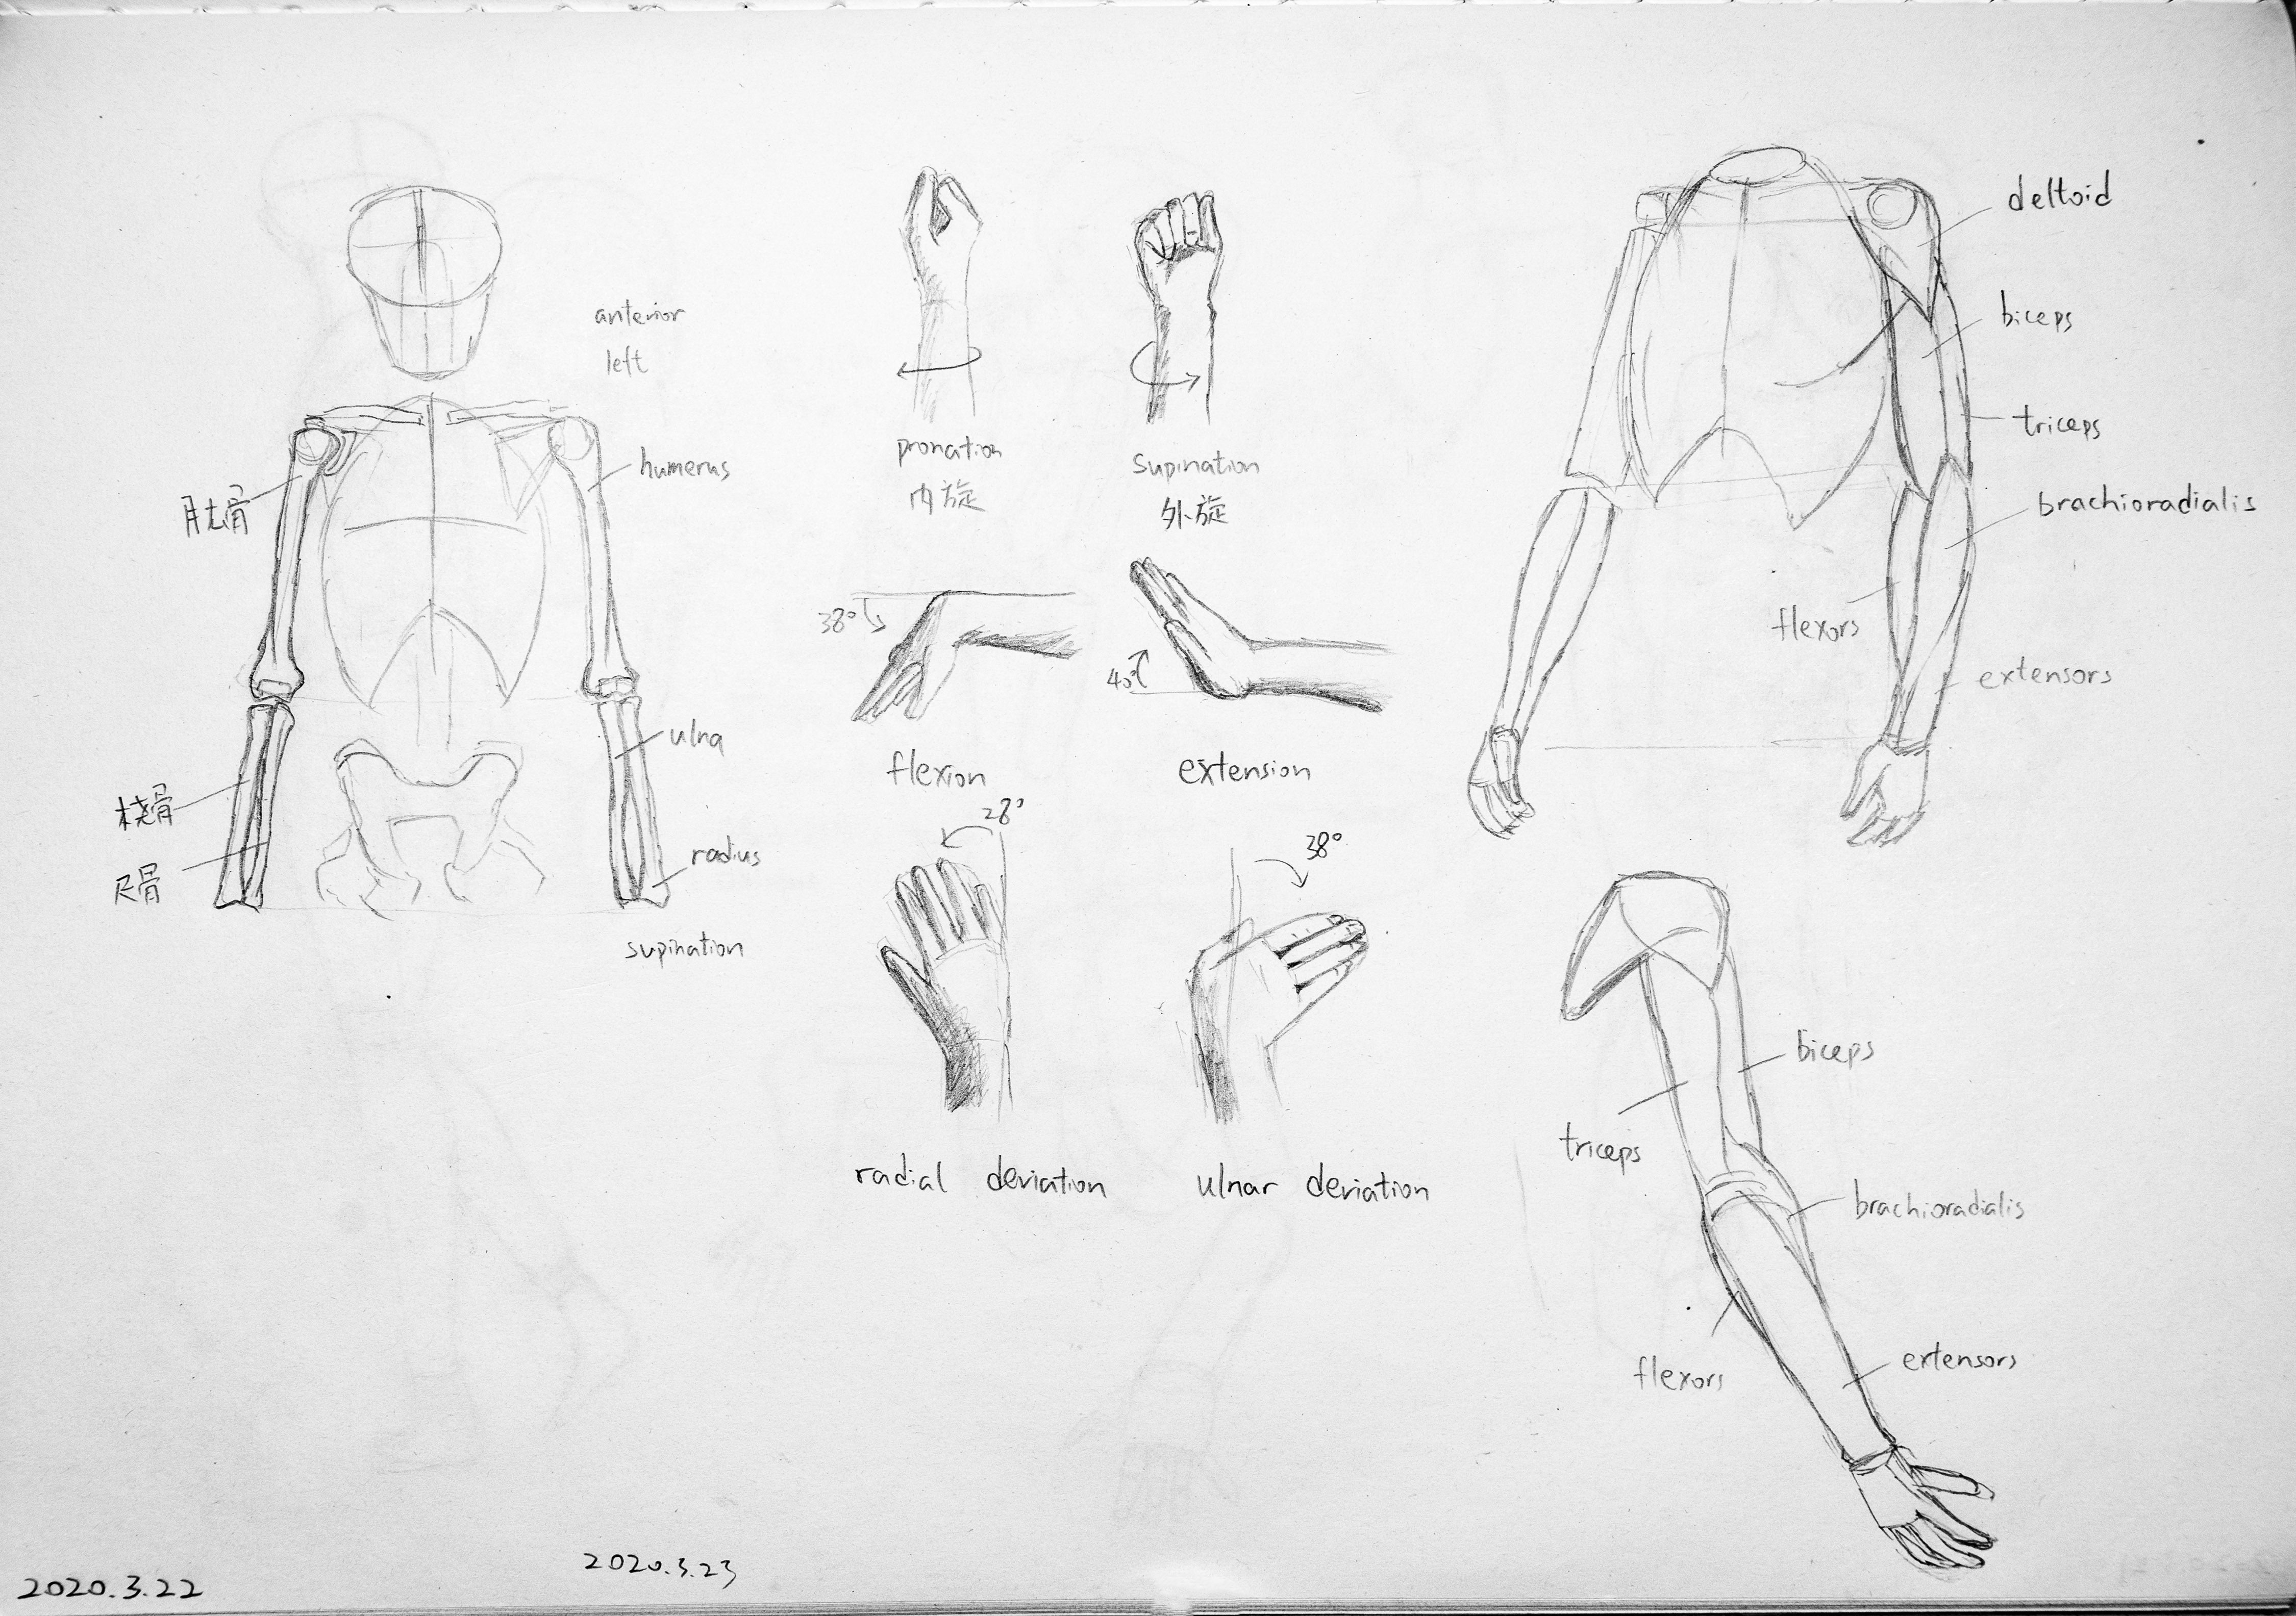 anterior
left
肱骨
humerus
ulna
桡骨
尺骨
radius
supination
pronation
内旋
supination
外旋
38°
flexion
40°
extension
28°
radial deviation
38°
ulnar deviation
deltoid
biceps
triceps
brachioradialis
flexors
extensors
biceps
triceps
brachioradialis
flexors
extensors
2020.3.22
2020.3.23